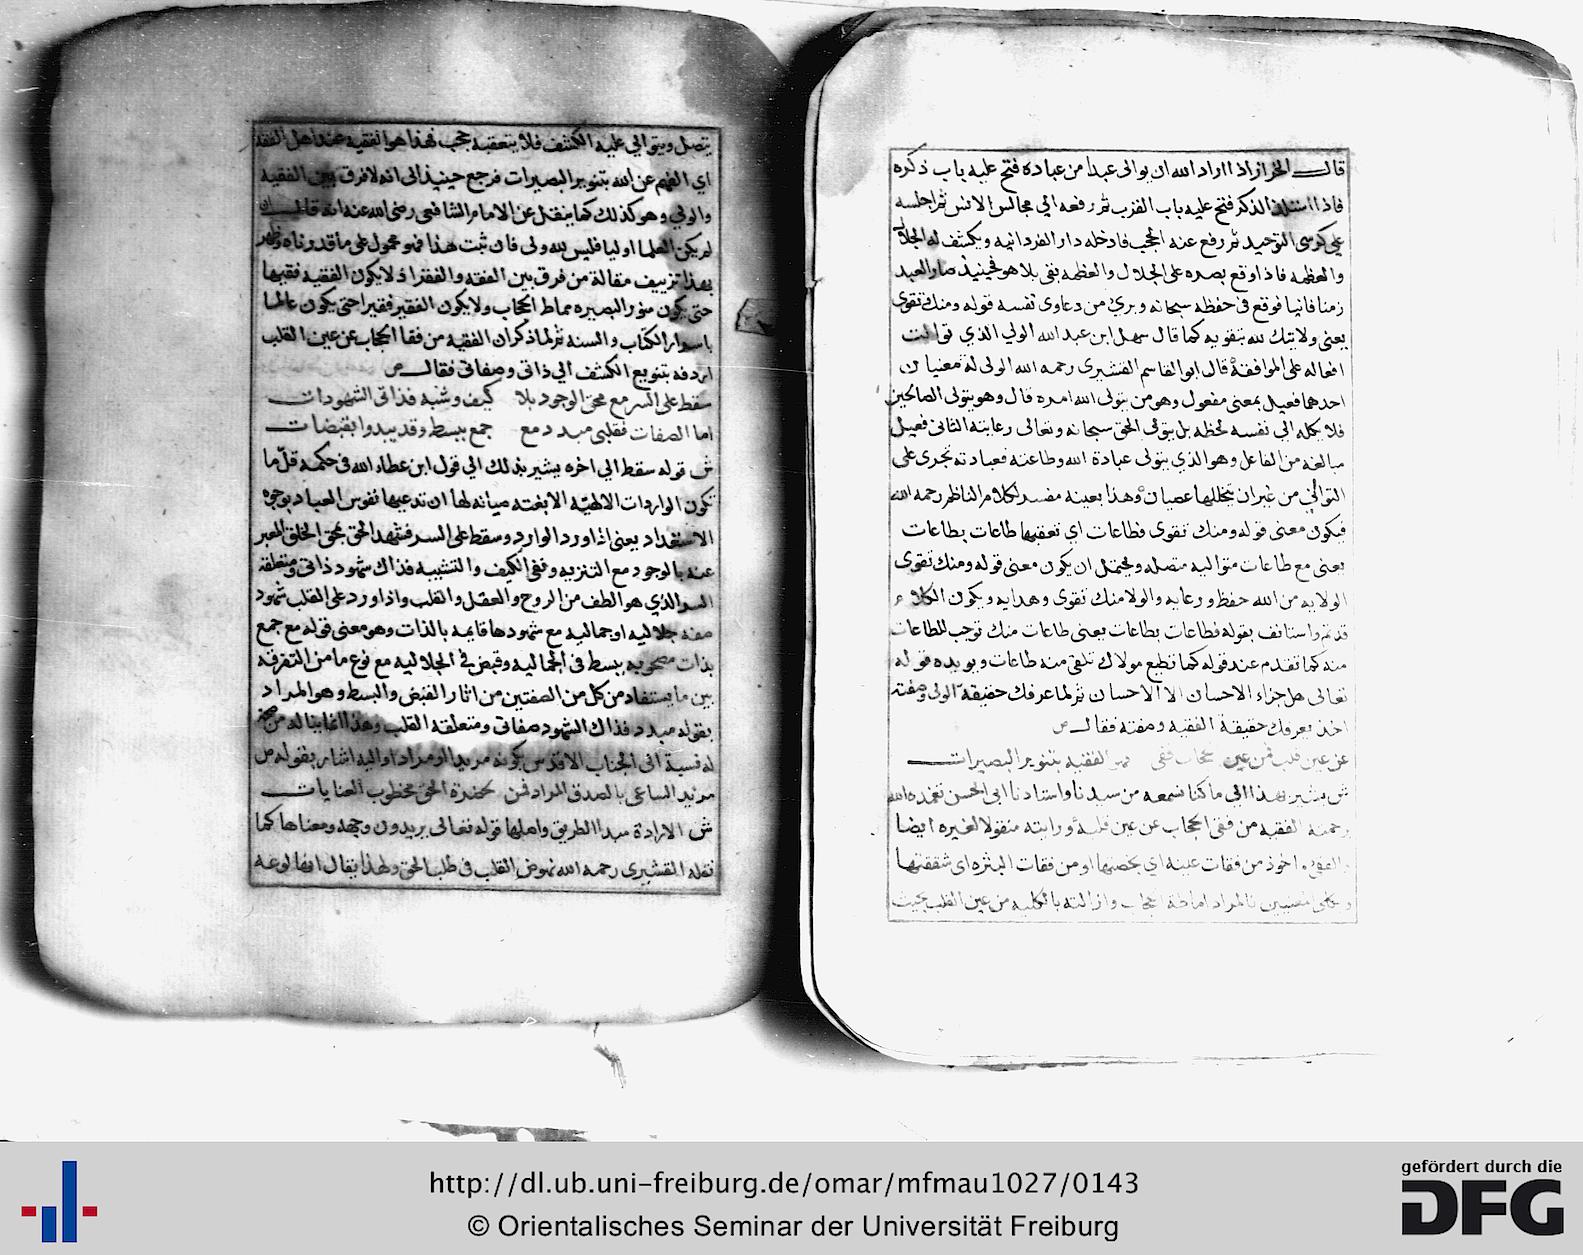 قال الخراز اذا اراد الله ان يوالى عبدا من عباده فتح عليه باب ذكره
فاذا استلذ الذكر فتح عليه باب القرب ثم رفعه الي مجالس الانس ثم اجلسه
علي كرسى التوحيد ثم رفع عنه الحجب فادخله دار الفردانيه ويكشف له الجلال
والعظمه فاذا وقع بصره على الجلال والعظمه بقى بلا هو فحينيذ صار العبد
زمنا فانيا فوقع في حفظه سبحانه وبرئ من دعاوى نفسه قوله ومنك تقوى
يعنى ولايتك لله بتقويه كما قال سهل ابن عبد الله الولي الذي توالت
افعاله على الموافقة قال ابو القاسم القشيرى رحمه الله الولى له معنيان
احدهما فعيل بمعنى مفعول وهو من يتولى الله امره قال وهو يتولى الصالحين
فلا يكله الي نفسه لحظه بل يتولى الحق سبحانه وتعالى رعايته الثانى فعيل
مبالغه من الفاعل وهو الذي يتولى عبادة الله وطاعته فعبادته تجرى على
التوالي من غير ان يتخللها عصيان وهذا بعينه مفسد لكلام الناظم رحمه الله
فيكون معنى قوله ومنك تقوى فطاعات اي تعقبها طاعات بطاعات
يعنى مع طاعات متواليه متصله ويحتمل ان يكون معنى قوله ومنك تقوى
الولايه من الله حفظ ورعايه والولا منك تقوى وهدايه ويكون الكلام
قد تم واستانف بقوله فطاعات بطاعات يعنى طاعات منك توجب للطاعات
منه كما تقدم عند قوله كما تطيع مولاك تلقى منه طاعات ويويده قوله
تعالى هل جزاء الاحسان الا الاحسان ثم لما عرفك حقيقة الولى وصفته
اخذ يعرفك حقيقة الفقيه وصفته فقال ص
عن عين قلب فمن عين حجاب فقى الفقيه بتنوير البصيرات
ش يشير بهذا الي ما كنا نسمعه من سيدنا واستادنا ابى الحسن تغمده الله
رحمته الفقيه من فقى الحجاب عن عين قلبه ورايته منقولا لغيره ايضا
ماخوذ من فقات عينه اي بخصتها او من فقات البثره اى شققتها
المعنيين فالمراد اماطة الحجاب وازالته بالكليه من عين القلب بحيث
يتصل ويتوالي عليه الكشف فلا يتعقبه حجب فهذا هو الفقيه عند اهل الفقه
اي الفهم عن الله بتنوير البصيرات فرجع حينيذ الى انه لا فرق بين الفقيه
والولي وهو كذلك كما ينقل عن الامام الشافعى رضى الله عنه انه قال ان
لم يكن العلما اوليا فليس لله ولى فان ثبت هذا فهو محمول على ما قدرناه وظهر
بهذا تزييف مقالة من فرق بين الفقه والفقر اذ لا يكون الفقيه فقيها
حتى يكون منور البصيره مماط الحجاب ولا يكون الفقير فقيرا حتى يكون عالما
باسرار الكتاب والسنه ثم لما ذكر ان الفقيه من فقا الحجاب عن عين القلب
اردفه بتنويع الكشف الي ذاتى وصفاتى فقال ص
سقط على السر مع محق الوجود بلا كيف وشبه فذاتى الشهودات
اما الصفات فقلبى مبدد مع جمع ببسط وقد يبدوا بقبضات
ش قوله سقط الي اخره يشير بذلك الي قول ابن عطاء الله فى حكمه قل ما
تكون الواردات الالهيه الا بغته صيانه لها ان تدعيها نفوس العباد بوجوه
الاستعداد يعنى اذا ورد الوارد وسقط على السر فشهد الحق بمحق الخلق المعبر
عنه بالوجود مع التنزيه ونفى الكيف والتشبيه فذاك شهود ذاتى ومتعلقه
السر الذي هو الطف من الروح والعقل والقلب واذا ورد على القلب شهود
صفه جلاليه او جماليه مع شهودها قايمه بالذات وهو معنى قوله مع جمع
بذات مصحوبه ببسط فى الجماليه وقبض في الجلاليه مع نوع ما من التفرقه
بين ما يستفاد من كل من الصفتين من اثار القبض والبسط وهو المراد
بقوله مبدد فذاك الشهود صفاتى ومتعلقه القلب وهذا انما يناله من صح
له نسبة الى الجناب الاقدس بكونه مريدا او مرادا واليه اشار بقوله ص
مريد الساعى بالصدق المراد لمن بحضرة الحق مخطوب العنايات
ش الارادة مبدا الطريق واهلها قوله تعالى يريدون وجهه ومعناها كما
نقله القشيرى رحمه الله نهوض القلب فى طلب الحق ولهذا يقال انها لوعه
http://dl.ub.uni-freiburg.de/omar/mfmau1027/0143
© Orientalisches Seminar der Universität Freiburg
gefördert durch die
DFG